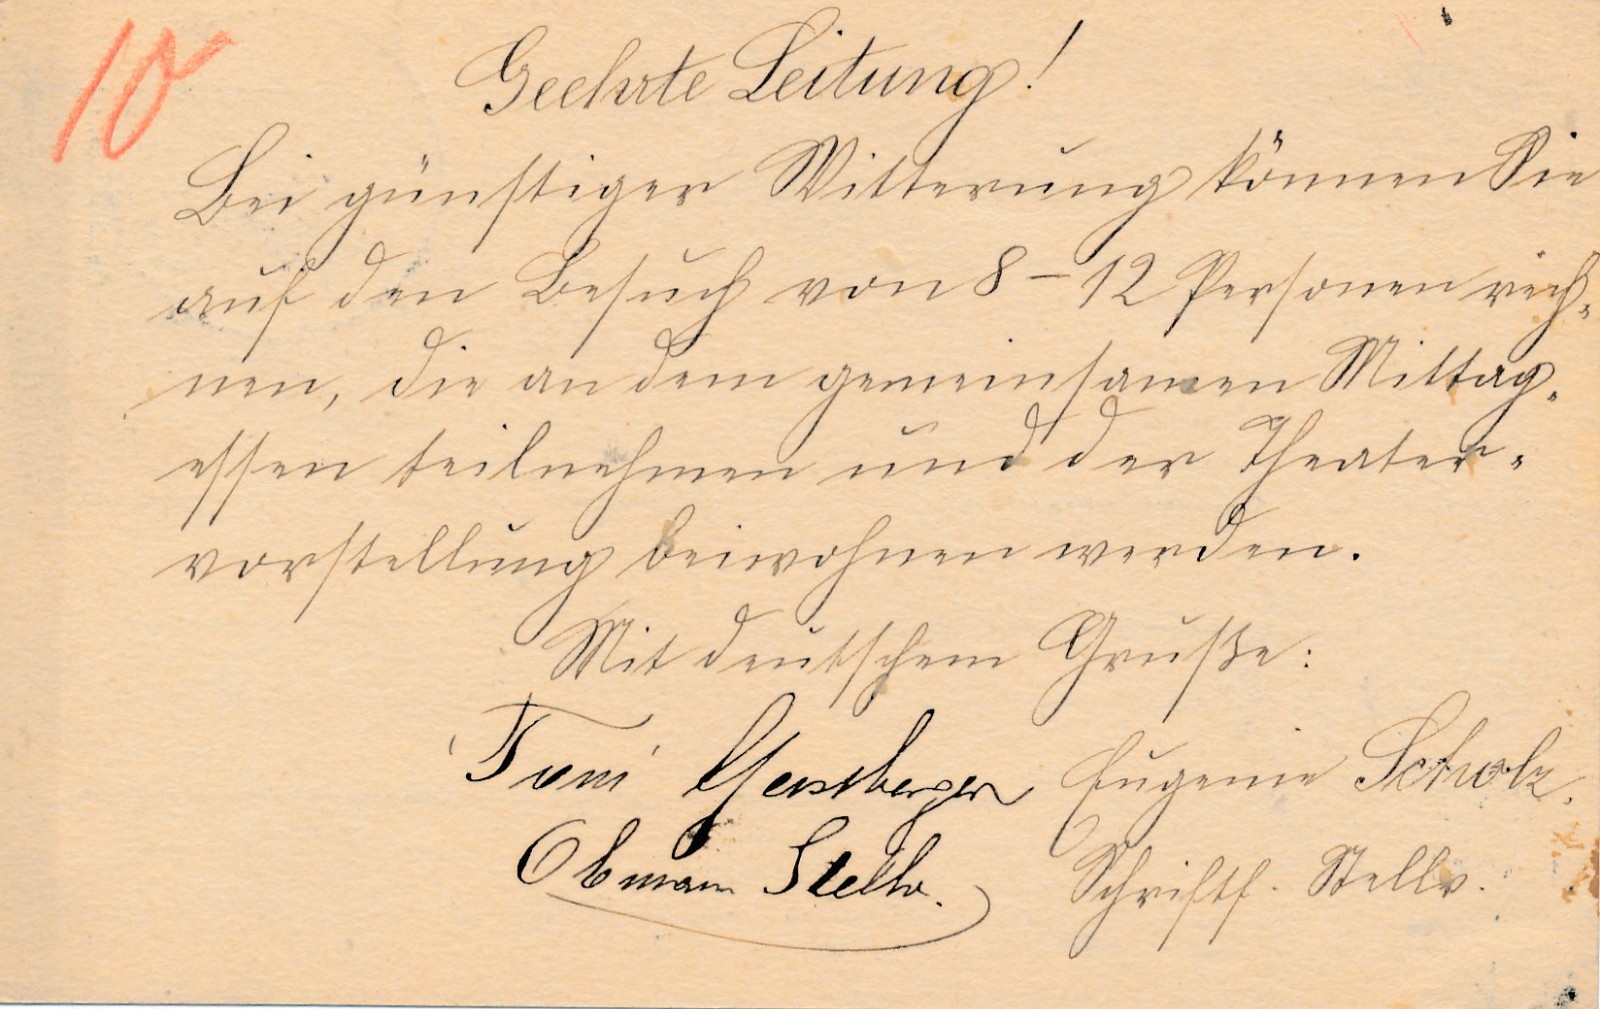 10
Geehrte Leitung!
Bei günstiger Witterung können Sie
auf den Besuch von 8–12 Personen rech-
nen, die an dem gemeinsamen Mittag-
essen teilnehmen und der Theater-
vorstellung beiwohnen werden.
Mit deutschem Gruße:
Toni Eugenie Scholz.
Obmann Stellv. Schriftf. Stellv.